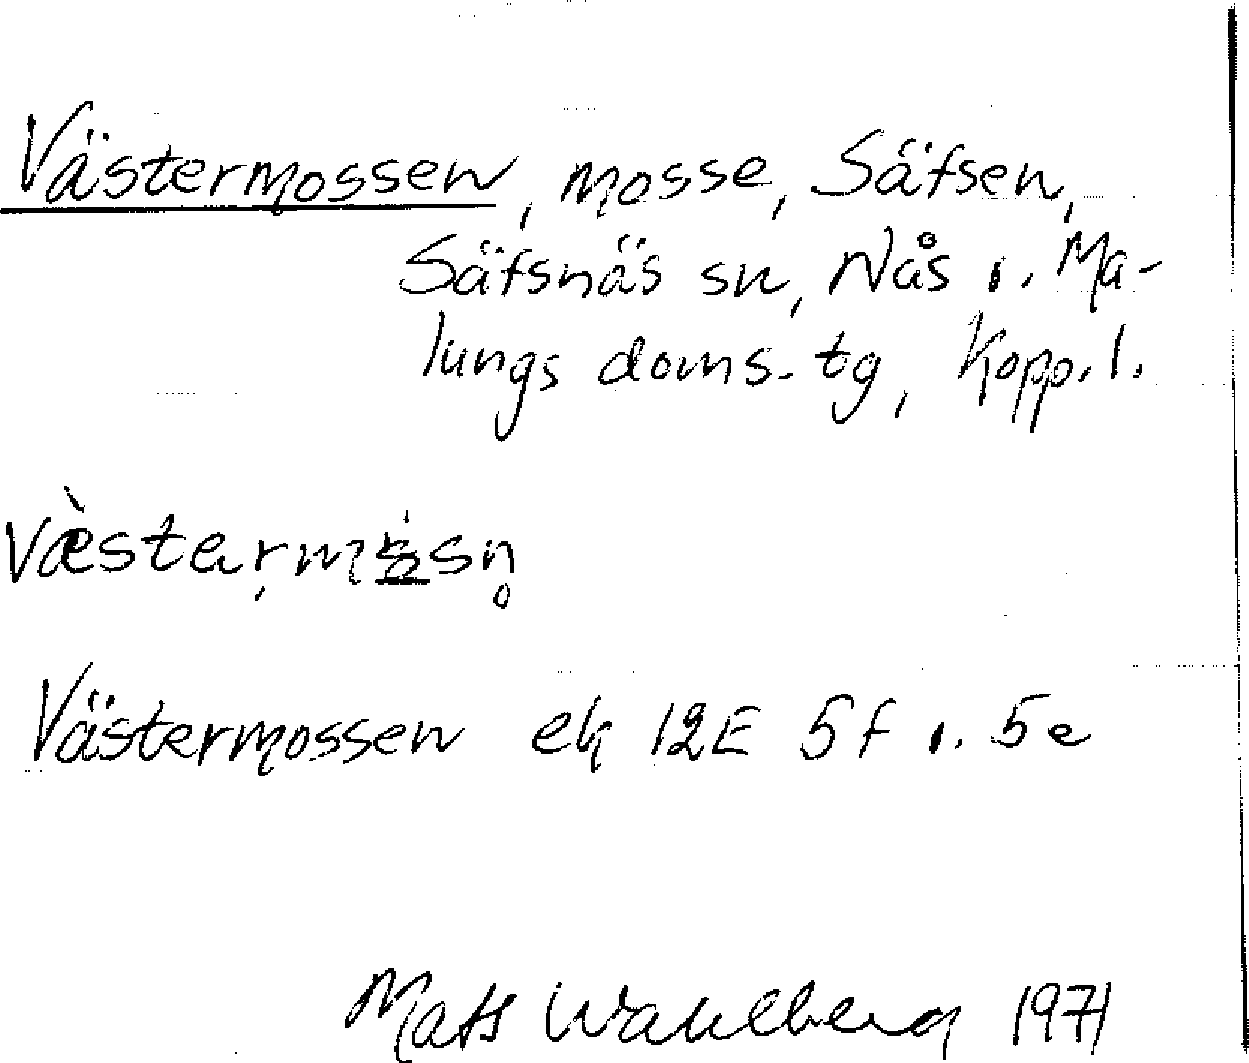 Västermossen, mosse, Säfsen,
Säfsnäs sn, Nås o. Ma-
lungs doms. tg, Kopp. l.
Västermossen ek 12E 5f o. 5e
Mats Wahlberg 1971